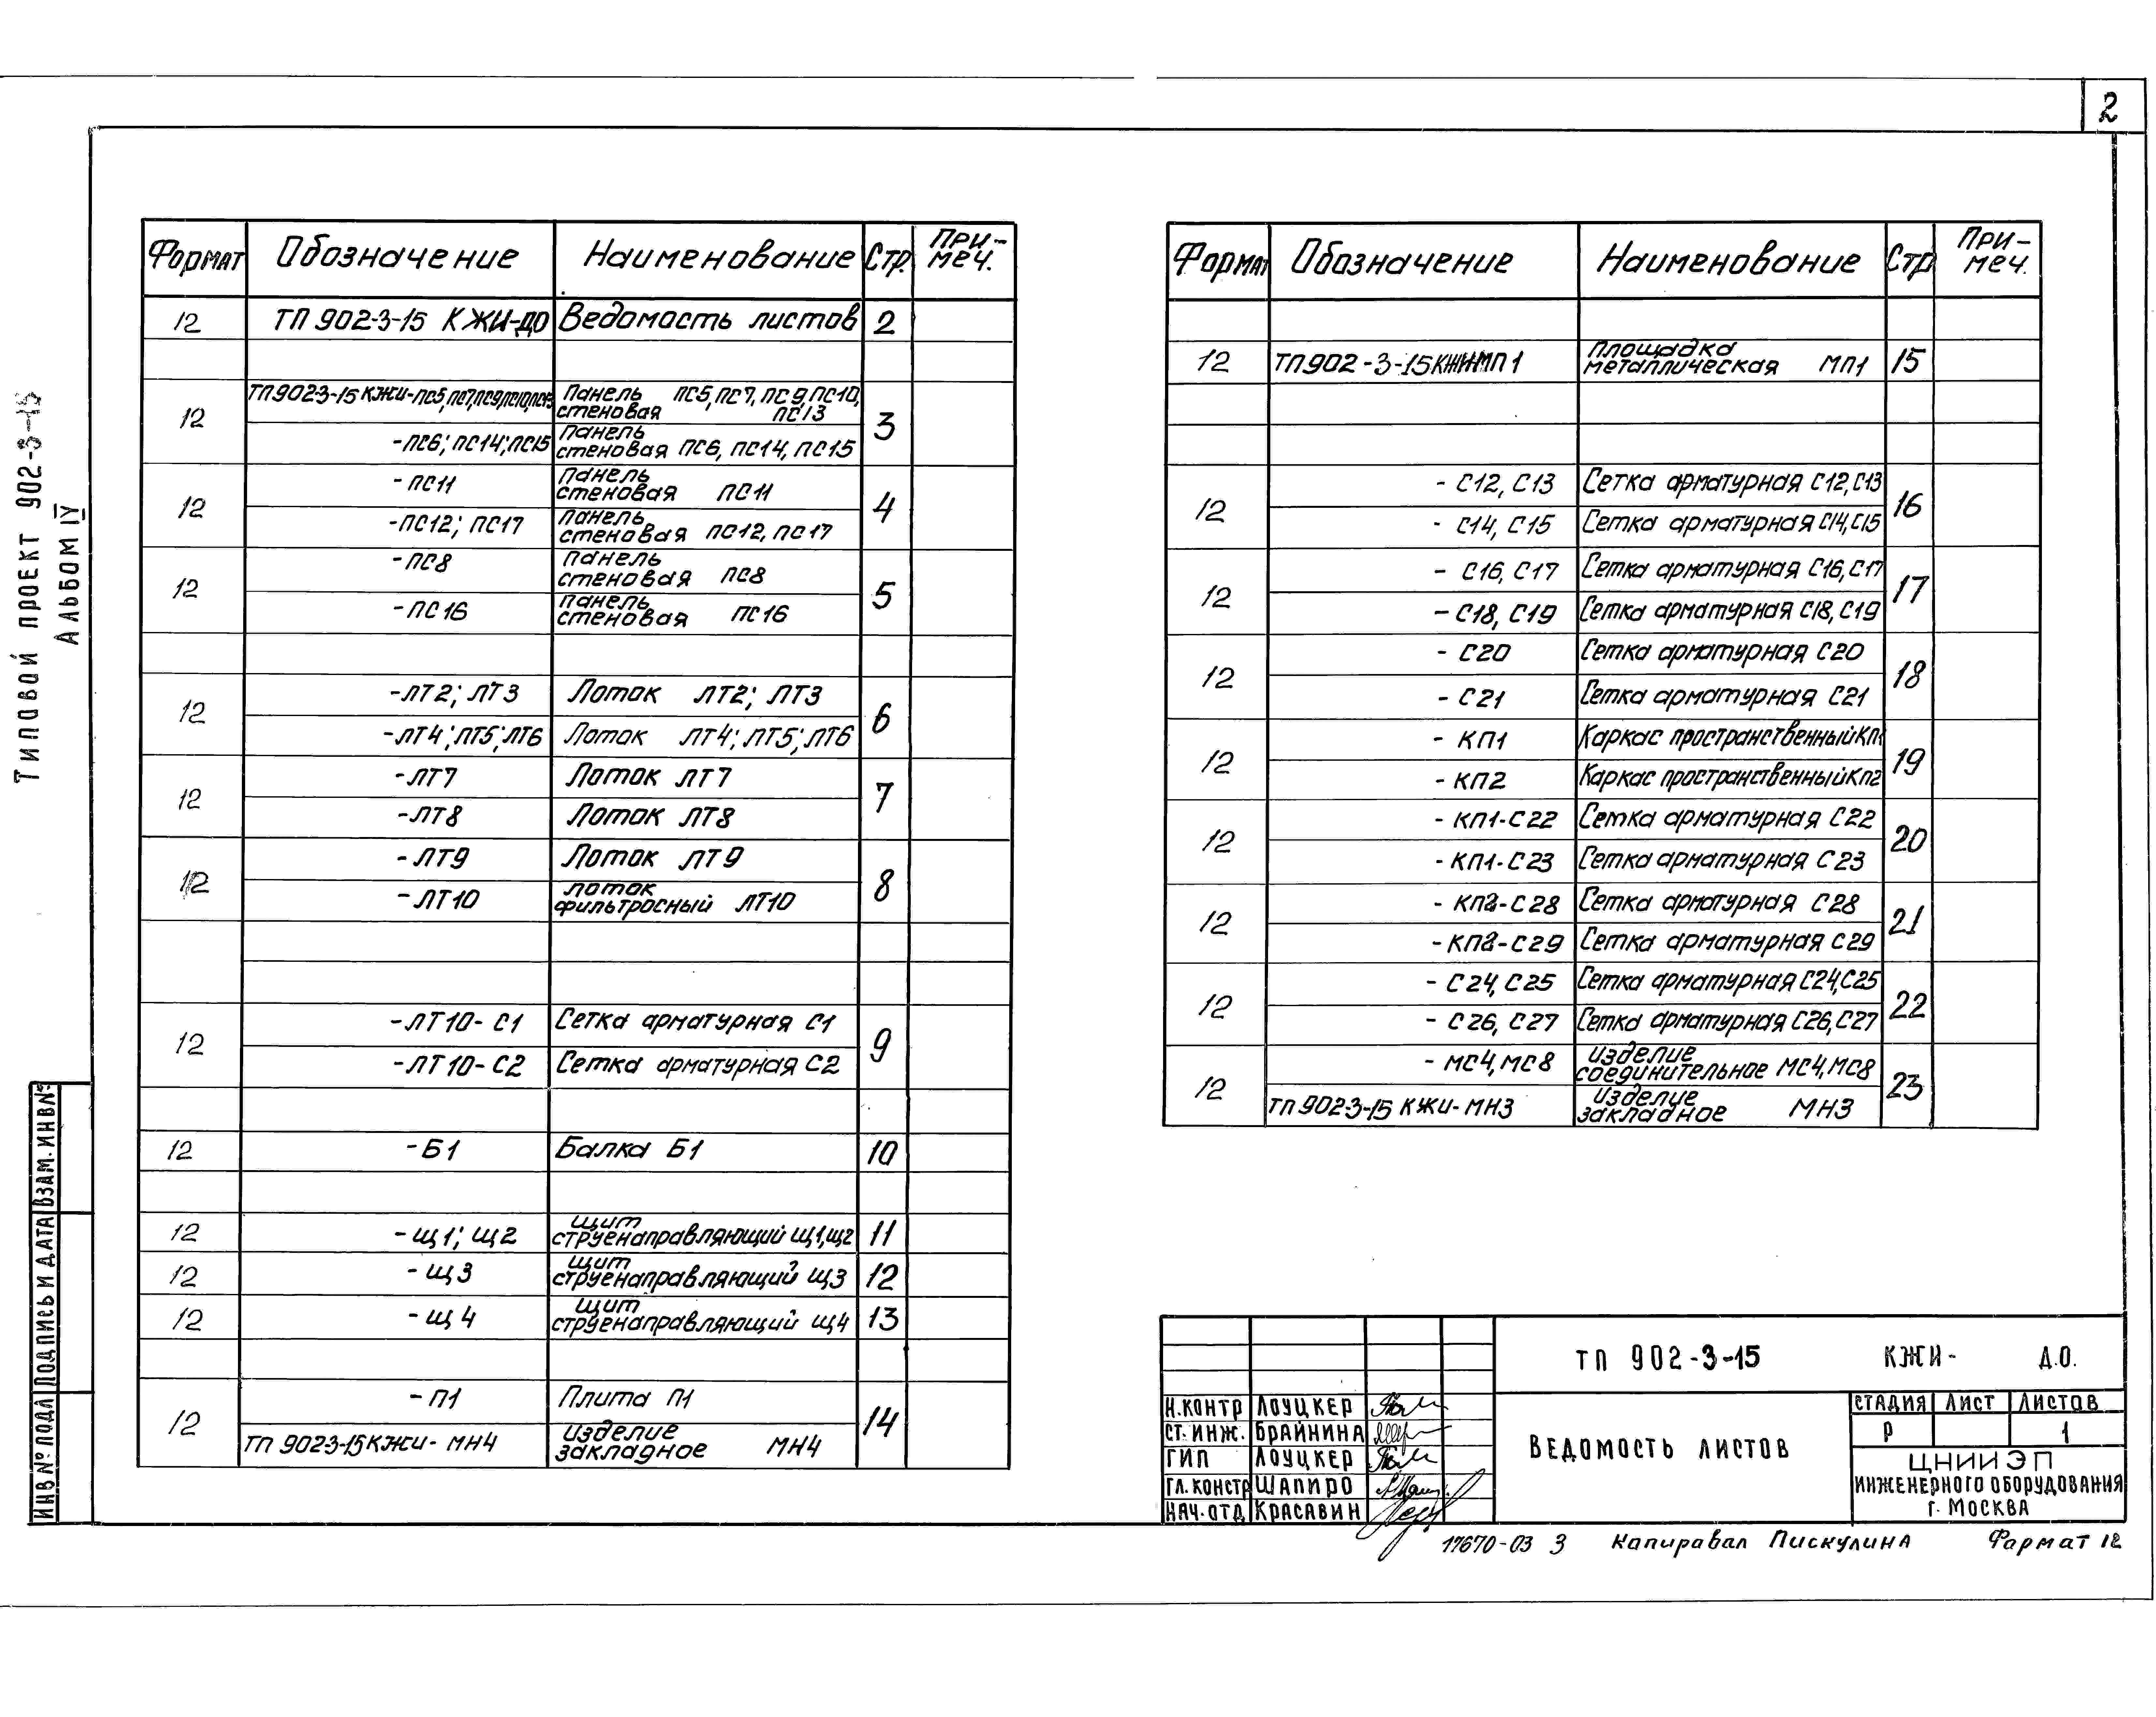 2
Типовой проект 902-3-15
Альбом IV
Формат Обозначение Наименование Стр. При-меч.
12 ТП 902-3-15 КЖИ-ДО Ведомость листов 2
12 ТП902-3-15 КЖИ-ПС5,ПС7,ПС9,ПС10,ПС13 Панель стеновая ПС5, ПС7, ПС9, ПС10, ПС13 3
-ПС6; ПС14; ПС15 Панель стеновая ПС6, ПС14, ПС15
12 -ПС11 Панель стеновая ПС11 4
-ПС12; ПС17 Панель стеновая ПС12, ПС17
12 -ПС8 Панель стеновая ПС8 5
-ПС16 Панель стеновая ПС16
12 -ЛТ2; ЛТ3 Лоток ЛТ2; ЛТ3 6
-ЛТ4; ЛТ5; ЛТ6 Лоток ЛТ4; ЛТ5; ЛТ6
12 -ЛТ7 Лоток ЛТ7 7
-ЛТ8 Лоток ЛТ8
12 -ЛТ9 Лоток ЛТ9 8
-ЛТ10 Лоток фильтросный ЛТ10
12 -ЛТ10-С1 Сетка арматурная С1 9
-ЛТ10-С2 Сетка арматурная С2
12 -Б1 Балка Б1 10
12 -Щ1; Щ2 Щит струенаправляющий Щ1,Щ2 11
12 -Щ3 Щит струенаправляющий Щ3 12
12 -Щ4 Щит струенаправляющий Щ4 13
12 -П1 Плита П1 14
ТП 902-3-15 КЖИ-МН4 Изделие закладное МН4
Формат Обозначение Наименование Стр При-меч.
12 ТП902-3-15 КЖИ-МП1 Площадка металлическая МП1 15
12 - С12, С13 Сетка арматурная С12,С13 16
- С14, С15 Сетка арматурная С14,С15
12 - С16, С17 Сетка арматурная С16,С17 17
- С18, С19 Сетка арматурная С18, С19
12 - С20 Сетка арматурная С20 18
- С21 Сетка арматурная С21
12 - КП1 Каркас пространственный КП1 19
- КП2 Каркас пространственный КП2
12 - КП1-С22 Сетка арматурная С22 20
- КП1-С23 Сетка арматурная С23
12 - КП2-С28 Сетка арматурная С28 21
- КП2-С29 Сетка арматурная С29
12 - С24, С25 Сетка арматурная С24,С25 22
- С26, С27 Сетка арматурная С26,С27
12 - МС4, МС8 Изделие соединительное МС4, МС8 23
ТП 902-3-15 КЖИ-МН3 Изделие закладное МН3
ИНВ № ПОДЛ ПОДПИСЬ И ДАТА ВЗАМ. ИНВ №
ТП 902-3-15 КЖИ- Д.О.
Н.КОНТР ЛОУЦКЕР
СТ. ИНЖ. БРАЙНИНА
ГИП ЛОУЦКЕР
ГЛ. КОНСТР ШАПИРО
НАЧ. ОТД КРАСАВИН
ВЕДОМОСТЬ ЛИСТОВ
СТАДИЯ ЛИСТ ЛИСТОВ
Р 1
ЦНИИЭП
ИНЖЕНЕРНОГО ОБОРУДОВАНИЯ
Г. МОСКВА
17670-03 3 Копировал Пискулина Формат 12